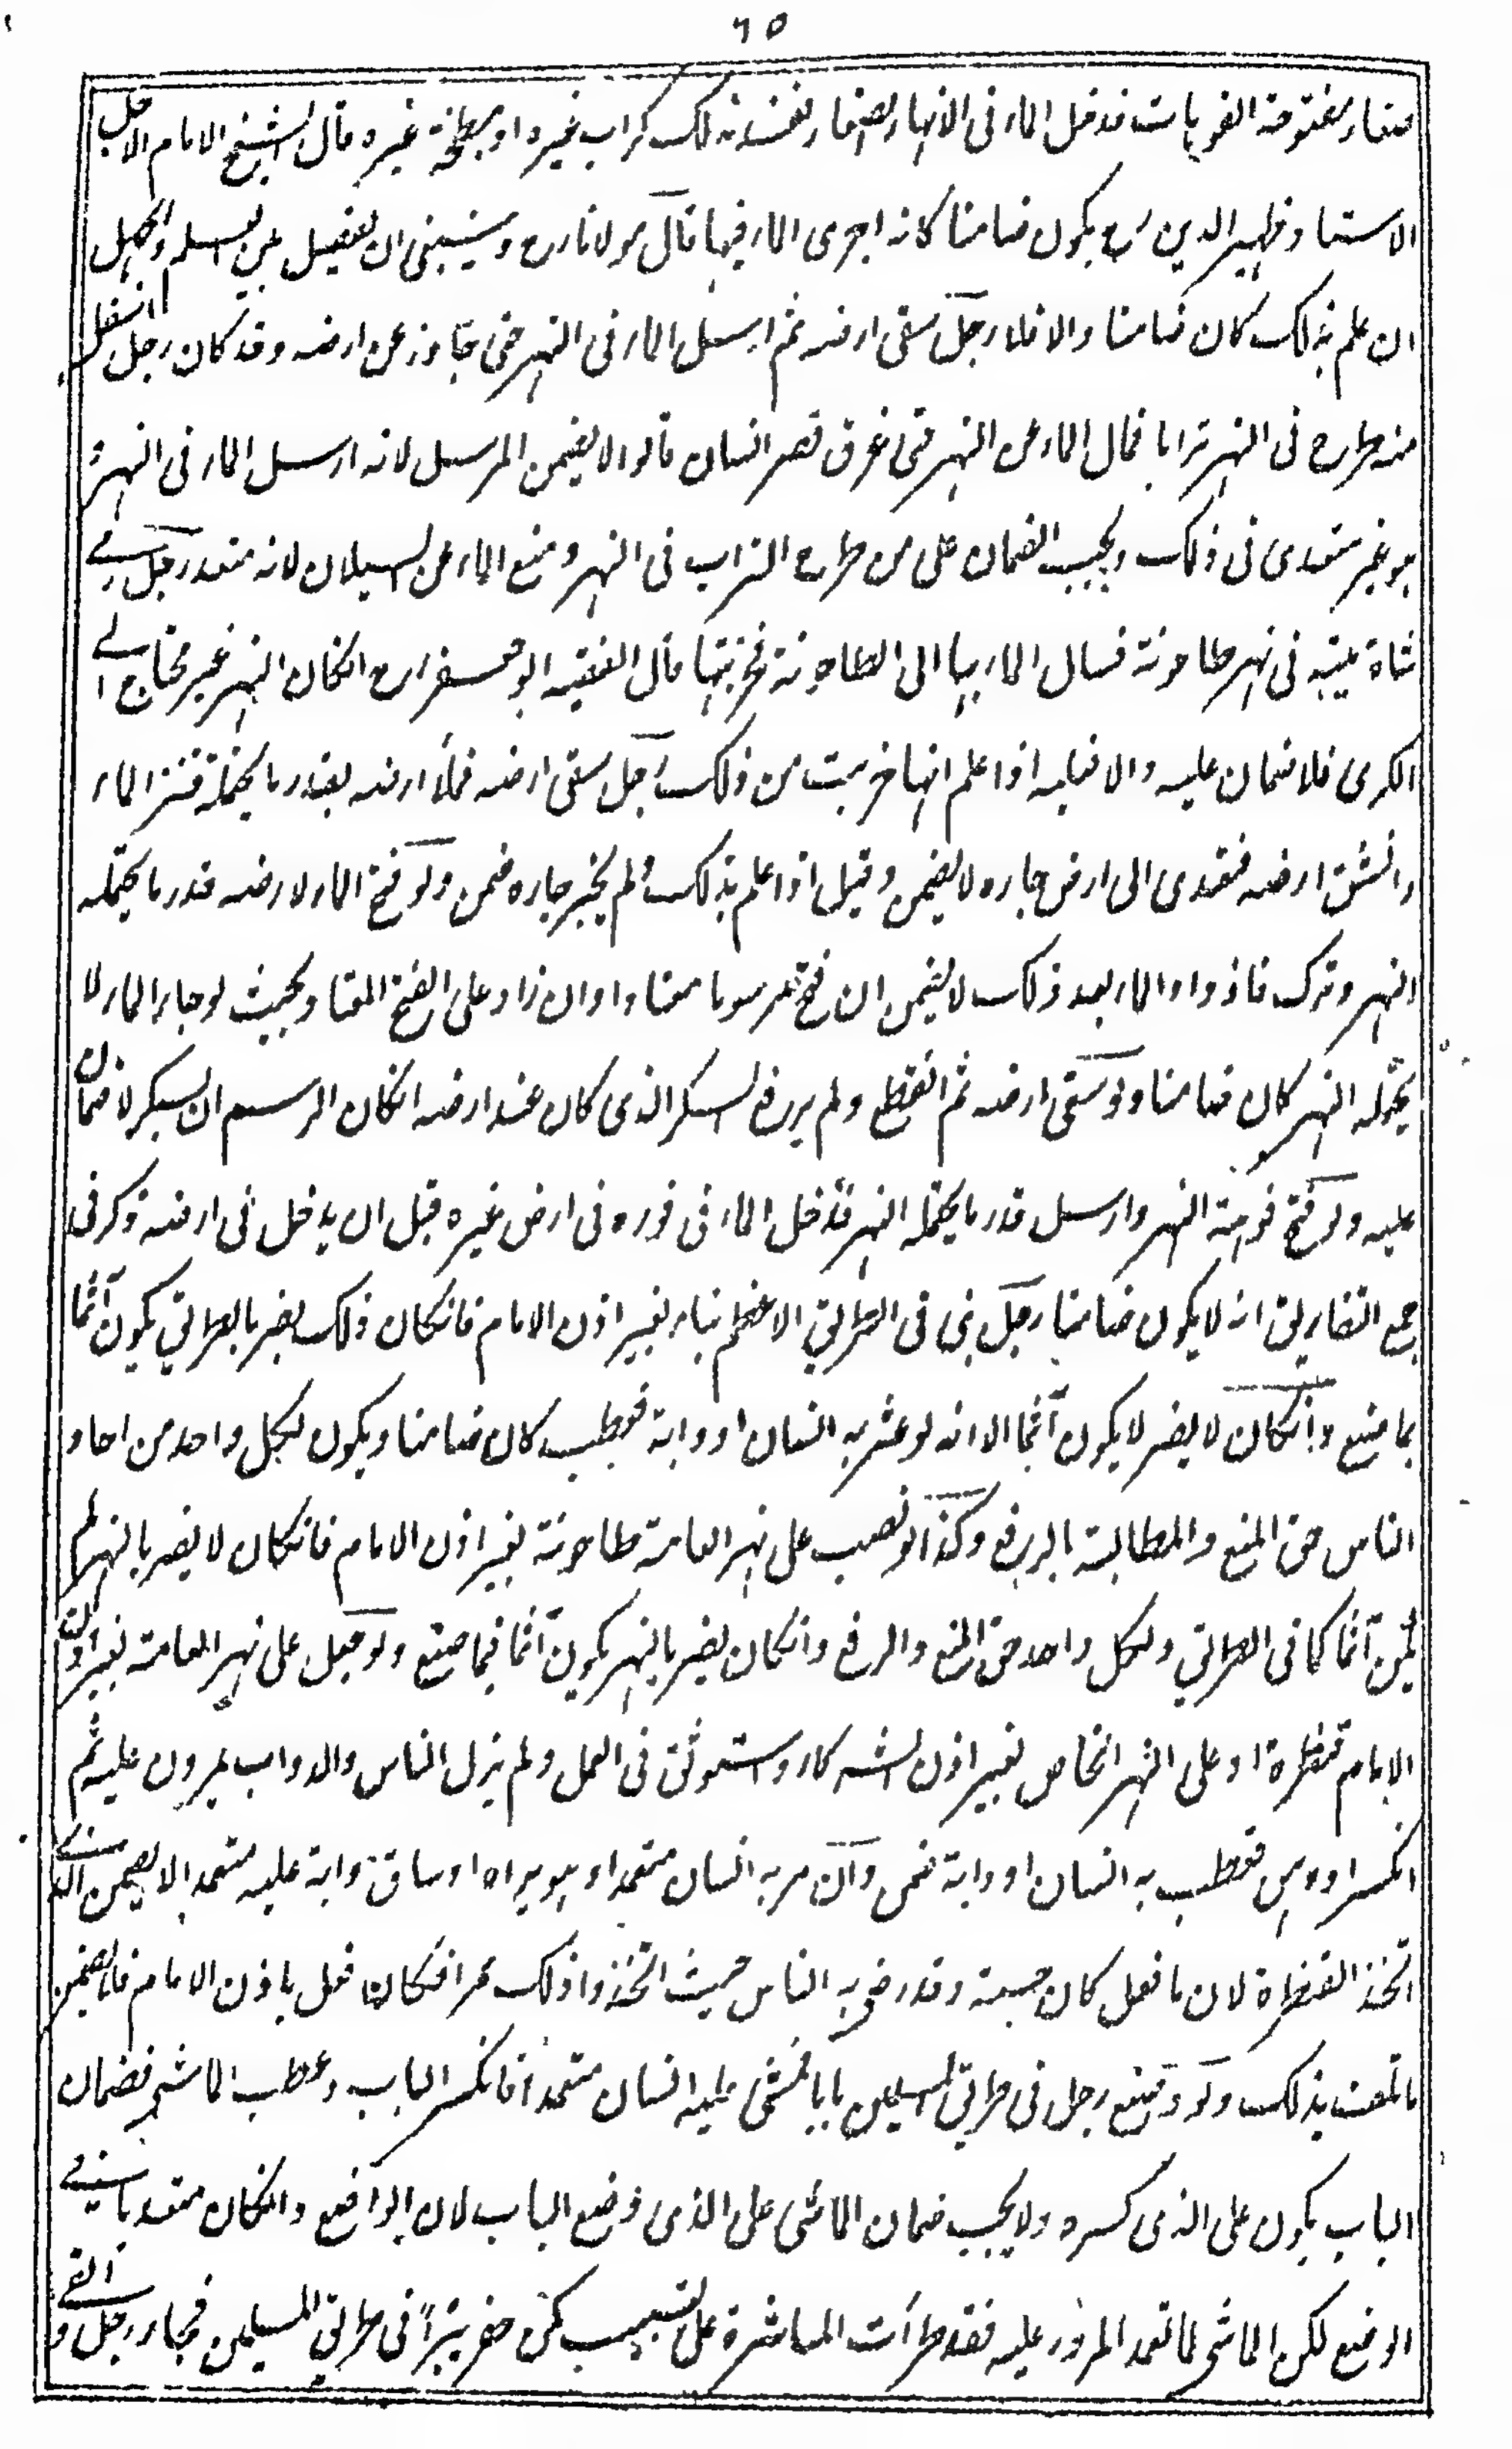 ٦٥
صغار مفتوحة الفوهات فدخل الماء فى الانهار الصغار ففسد بذلك كراب غيره او مبطخة غيره قال الشيخ الامام الاجل
الاستاد ظهير الدين رح يكون ضامنا كانه اجرى الماء فيها قال مولانا رح وينبغى ان يفصل بين العلم والجهل
ان علم بذلك كان ضامنا والا فلا رجل سقى ارضه ثم ارسل الماء فى النهر حتى جاوز عن ارضه وقد كان رجل اسفل
منه طرح فى النهر ترابا فمال الماء عن النهر حتى غرق قصر انسان قالوا لا يضمن المرسل لانه ارسل الماء فى النهر و
هو غير متعدى فى ذلك ويجب الضمان على من طرح التراب فى النهر ومنع الماء عن السيلان لانه متعد رجل رمى
شاة ميتة فى نهر طاحونة فسال الماء بها الى الطاحونة فخربتها قال الفقيه ابو جعفر رح انكان النهر غير محتاج الى
الكرى فلا ضمان عليه والا فعليه اذا علم انها خربت من ذلك رجل سقى ارضه فملأ ارضه بقدر ما يحتمله فنز الماء
وانشق ارضه فتعدى الى ارض جاره لا يضمن وقيل اذا علم بذلك ولم يخبر جاره ضمن ولو فتح الماء لارضه قدر ما يحتمله
النهر وترك فازداد الماء بعد ذلك لا يضمن ان فتح مرسوما معتادا وان زاد على الفتح المعتاد بحيث لو جاء الماء لا
يحتمله النهر كان ضامنا ولو سقى ارضه ثم انقطع ولم يرفع السكر الذى كان عند ارضه انكان الرسم ان يسكر لا ضمان
عليه ولو فتح فوهة النهر وارسل قدر ما يحتمله النهر فدخل الماء فى فوره فى ارض غيره قبل ان يدخل فى ارضه ذكر فى
جمع التفاريق انه لا يكون ضامنا رجل بنى فى الطريق الاعظم بناء بغير اذن الامام فانكان ذلك يضر بالطريق يكون آثما
بما صنع وانكان لا يضر لا يكون آثما الا انه لو عثر به انسان او دابة فعطب كان ضامنا ويكون لكل واحد من احاد
الناس حق المنع والمطالبة بالرفع وكذا لو نصب على نهر العامة طاحونة بغير اذن الامام فانكان لا يضر بالنهر لم
يكن آثما كما فى الطريق ولكل واحد حق المنع والرفع وانكان يضر بالنهر يكون آثما فيما صنع ولو جعل على نهر العامة بغير اذن
الامام قنطرة او على النهر الخاص بغير اذن الشركاء واستوثق فى العمل ولم يزل الناس والدواب يمرون عليه ثم
انكسر او وهى فعطب به انسان او دابة ضمن وان مر به انسان متعمدا وهو يراه او ساق دابة عليه متعمدا لا يضمن الذى
اتخذ القنطرة لان ما فعل كان حسبة وقد رضى به الناس حيث اتخذوا ذلك ممرا فكانه فعل باذن الامام فلا يضمن
ما تلف بذلك ولو وضع رجل فى طريق المسلمين بابا فمشى عليه انسان متعمدا فانكسر الباب وعطب الماشى فضمان
الباب يكون على الذى كسره ولا يجب ضمان الماشى على الذى وضع الباب لان الواضع وانكان متعديا فى
الوضع لكن الماشى لما تعمد المرور عليه فقد طرأت المباشرة على التسبيب كمن حفر بئراً فى طريق المسلمين فجاء رجل والقى